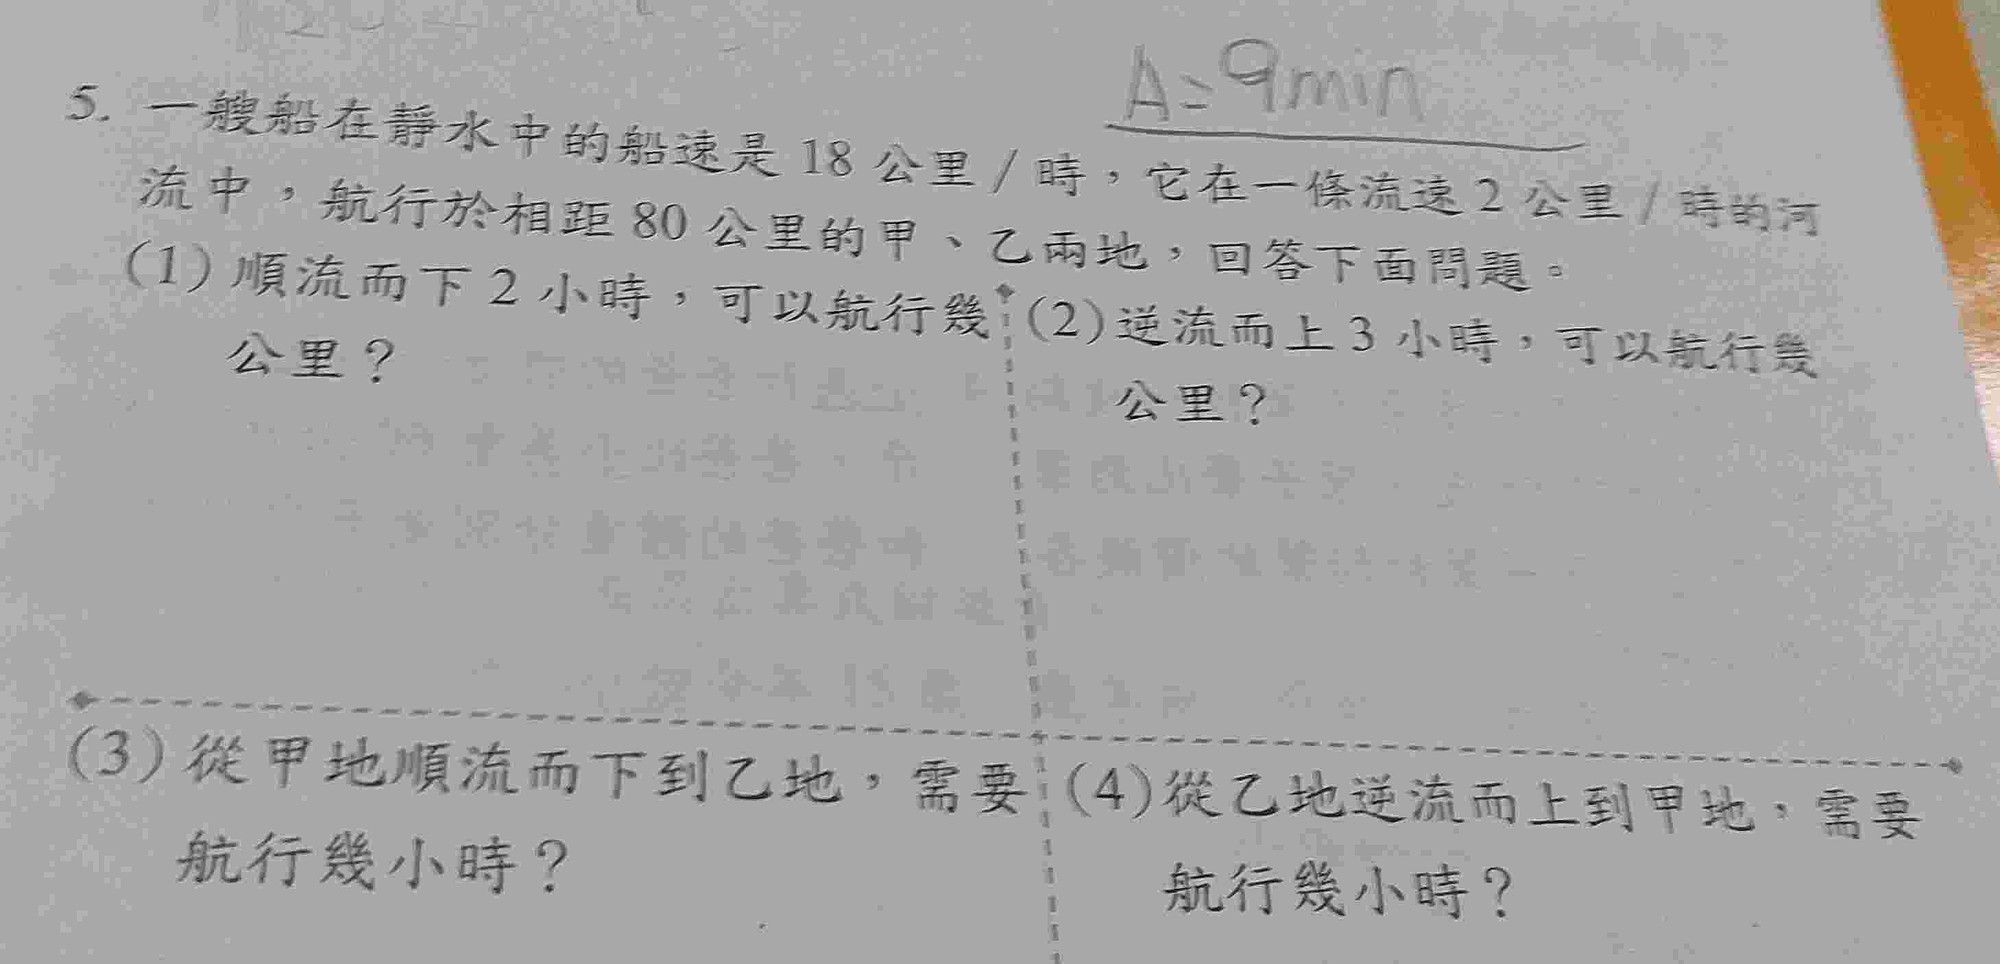 A=9min
5. 一艘船在靜水中的船速是 18 公里/時，它在一條流速 2 公里/時的河
流中，航行於相距 80 公里的甲、乙兩地，回答下面問題。
(1) 順流而下 2 小時，可以航行幾
公里？
(2) 逆流而上 3 小時，可以航行幾
公里？
(3) 從甲地順流而下到乙地，需要
航行幾小時？
(4) 從乙地逆流而上到甲地，需要
航行幾小時？